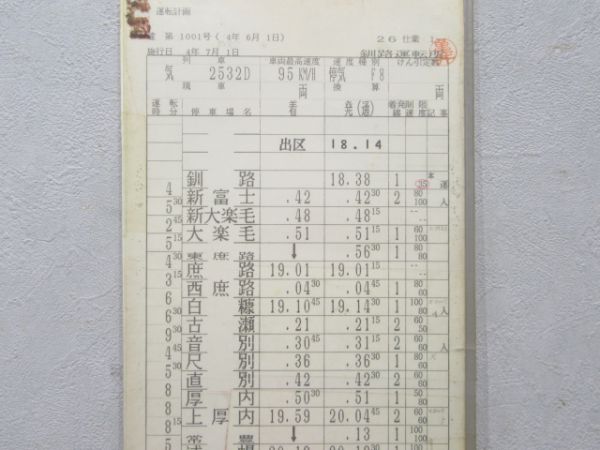 運転計画
第 1001号( 4年 6月 1日) 26 仕業
施行日 4年 7月 1日 釧路運転所
列車 車両最高速度 速度種別 けん引定数
気 2532D 95KM/H 停気 F8
現車 両 換算 両
運転時分 停車場名 着 発(通) 着発線 制限速度 記事
出区 18.14
釧路 18.38 1 35
4 新富士 .42 .42 30 2 80 100
5 30 新大楽毛 .48 .48 15
2 45 大楽毛 .51 .51 15 1 60 100
5 15 東庶路 ↓ .56 30 1 80
4 30 庶路 19.01 19.01 15
3 西庶路 .04 30 .04 45 1 80 60
6 白糠 19.10 45 19.14 30 1 100 60
6 30 古瀬 .21 .21 15 2 60 50
9 音別 .30 45 .31 15 2 60 60
4 45 尺別 .36 .36 30 1 80 80
5 直別 .42 .42 30 2 60 60
8 厚内 .50 30 .51 1 50 80
8 上厚内 19.59 20.04 45 2 60 60
8 15 ↓ .13 1 100 80